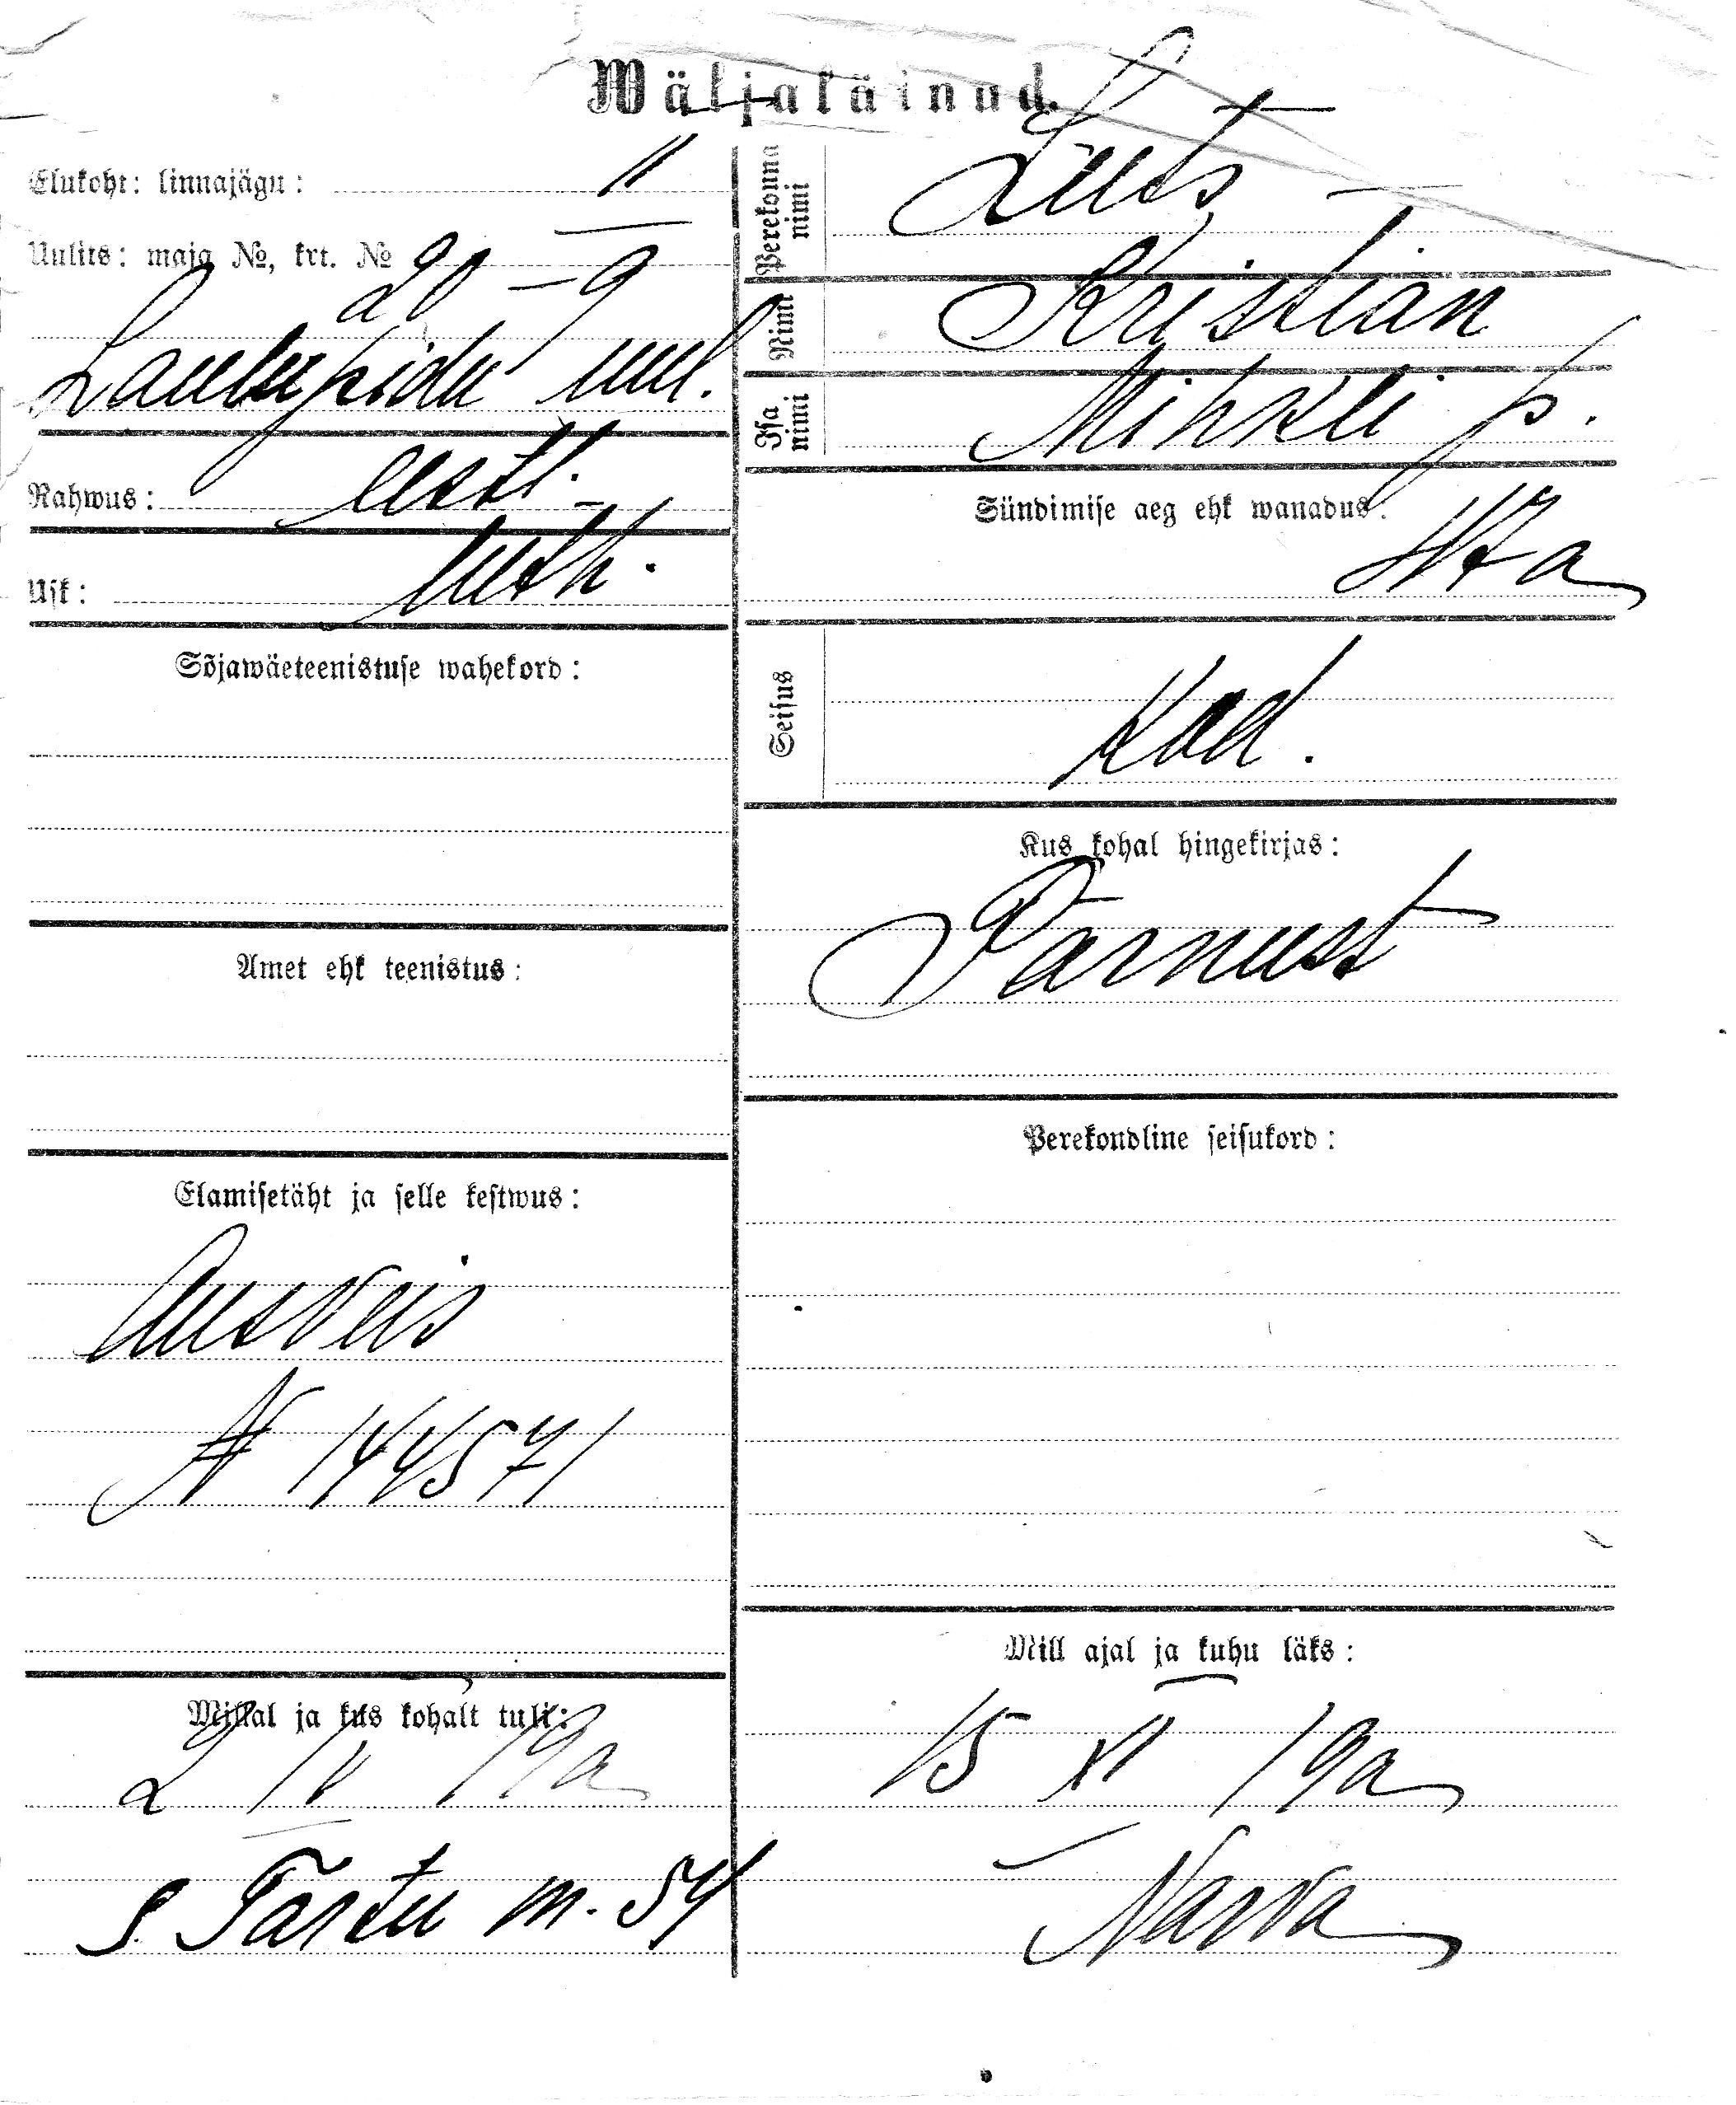 Wäljakäinud.
Elukoht: linnajägu: II
Uulits: maja No, krt. No 20 - 9
Laulupidu uul.
Rahwus: eesti
Usk: luth.
Sõjawäeteenistuse wahekord:
Amet ehk teenistus:
Elamisetäht ja selle kestwus:
Ausveis
N 144571
Millal ja kus kohalt tuli:
2 IV 19a
S. Tartu m. 54
Perekonna nimi Luts
Nimi Kristian
Isa nimi Mihkli p.
Sündimise aeg ehk wanadus:
47 a
Seisus
Kod.
Kus kohal hingekirjas:
Pärnust
Perekondline seisukord:
Mill ajal ja kuhu läks:
15 XI 19a
Narva